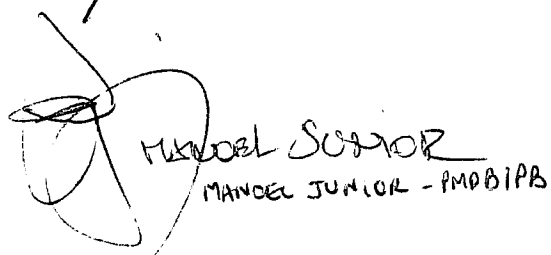 MANOEL JUNIOR
MANOEL JUNIOR - PMDB/PB